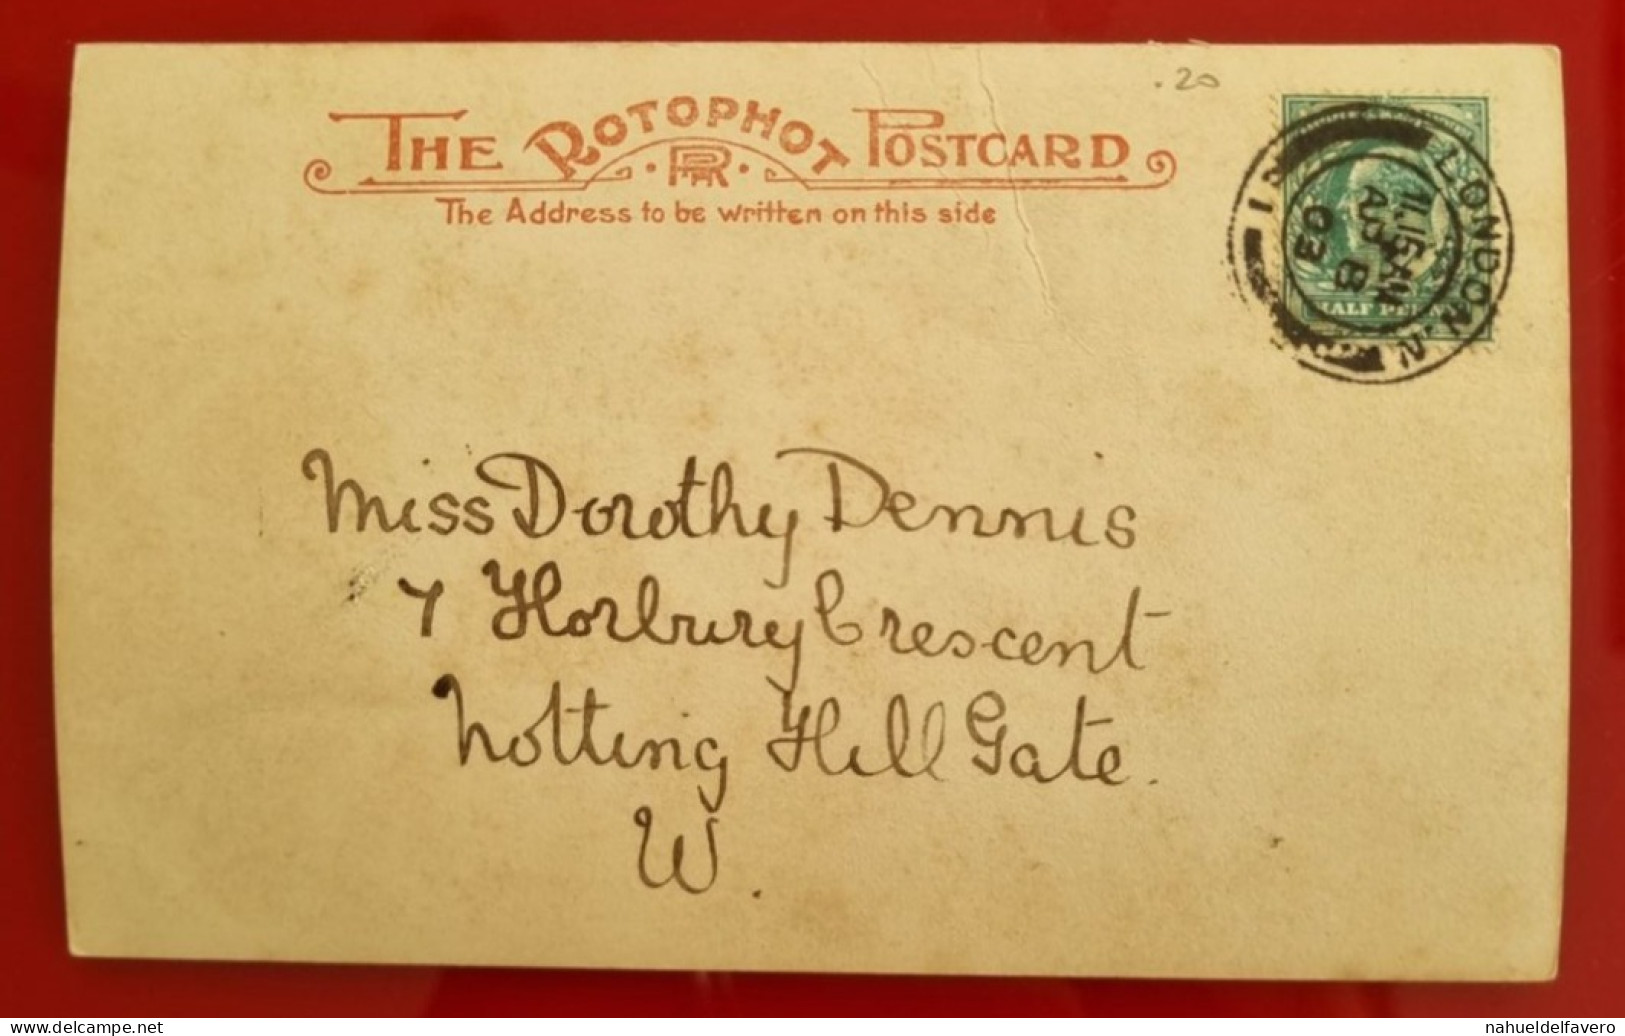 .20
THE ROTOPHOT POSTCARD
RPH
The Address to be written on this side
LONDON.N.
11.15AM
AU 8
03
HALF PENNY
Miss Dorothy Dennis
7 Horbury Crescent
Notting Hill Gate.
W.
delcampe.net
nahueldelfavero